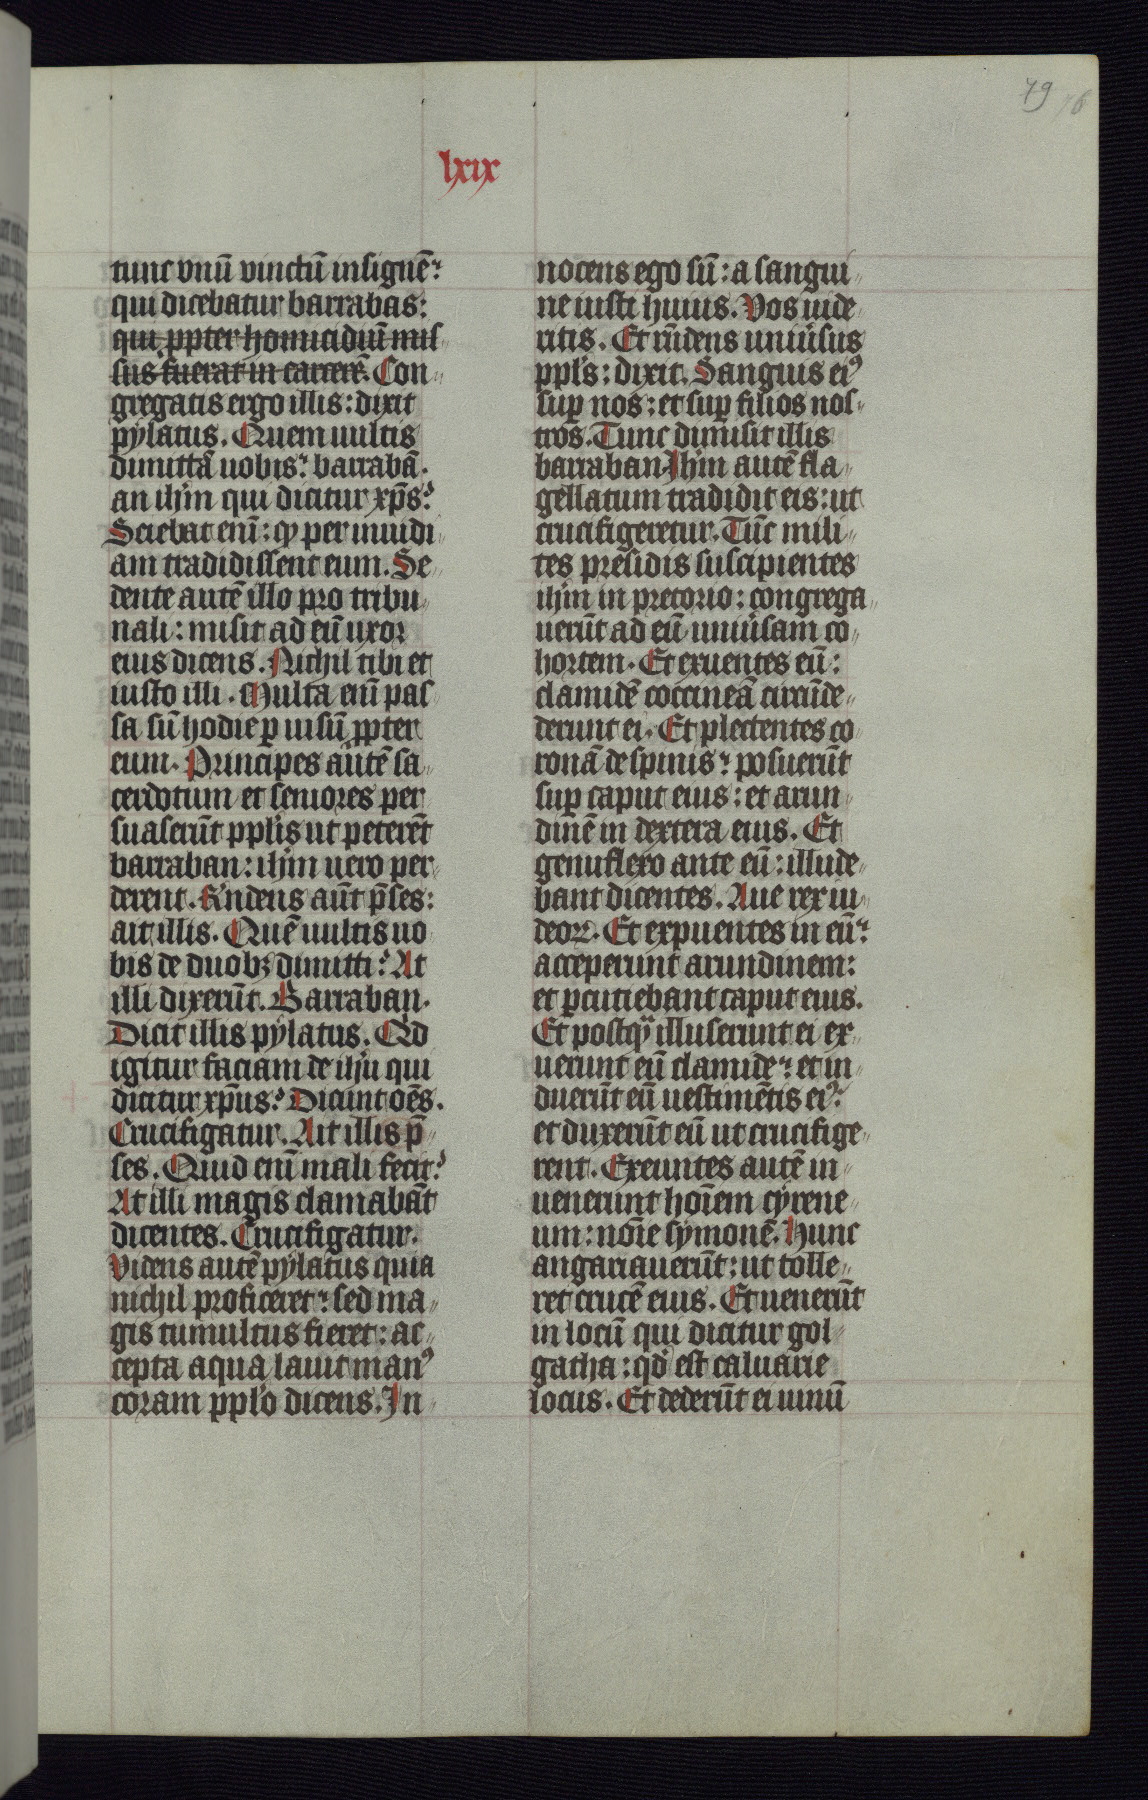 79 76
lxix
tunc vnū vinctū insignē:
qui dicebatur barrabas:
qui ꝓpter homicidiū mis
sus fuerat in carcerē. Con
gregatis ergo illis: dixit
pylatus. Quem uultis
dimittā uobis: barrabā.
an ihm̄ qui dicitur xp̄s?
Sciebat enī: ꝙ per inuidi
am tradidissent eum. Se
dente autē illo pro tribu
nali: misit ad eū uxor
eius dicens. Nichil tibi et
iusto illi. Multa enī pas
sa sū hodie ꝑ uisū ꝓpter
eum. Principes autē sa
cerdotum et seniores per
suaserūt ppl̄is ut peterēt
barraban: ihm̄ uero per
derent. Rn̄dens aūt p̄ses:
ait illis. Quē uultis uo
bis de duobꝫ dimitti? At
illi dixerūt. Barraban.
Dicit illis pylatus. Qd̄
igitur faciam de ihū qui
dicitur xp̄us? Dicunt oēs.
Crucifigatur. Ait illis p̄
ses. Quid enī mali fecit?
At illi magis clamabāt
dicentes. Crucifigatur.
Videns autē pylatus quia
nichil proficeret: sed ma
gis tumultus fieret: ac
cepta aqua lauit manꝰ
coram ppl̄o dicens. In
nocens ego sū: a sangui
ne iusti huius. Vos uide
ritis. Et rn̄dens uniūsus
ppl̄s: dixit. Sanguis eiꝰ
suꝑ nos: et suꝑ filios nos
tros. Tunc dimisit illis
barraban. Ihm̄ autē fla
gellatum tradidit eis: ut
crucifigeretur. Tūc mili
tes presidis suscipientes
ihm̄ in pretorio: congrega
uerūt ad eū uniūsam co
hortem. Et exuentes eū:
clamidē coccineā circūde
derunt ei. Et plectentes co
ronā de spinis: posuerūt
suꝑ caput eius: et arun
dinē in dextera eius. Et
genuflexo ante eū: illude
bant dicentes. Aue rex iu
deoꝝ. Et expuentes in eū:
acceperunt arundinem:
et ꝑcutiebant caput eius.
Et postqͣ illuserunt ei ex
uerunt eū clamide: et in
duerūt eū uestimētis eiꝰ:
et duxerūt eū ut crucifige
rent. Exeuntes autē in
uenerunt hoīem cyrene
um: noīe symonē. Hunc
angariauerūt: ut tolle
ret crucē eius. Et uenerūt
in locū qui dicitur gol
gatha: qd̄ est caluarie
locus. Et dederūt ei uinū